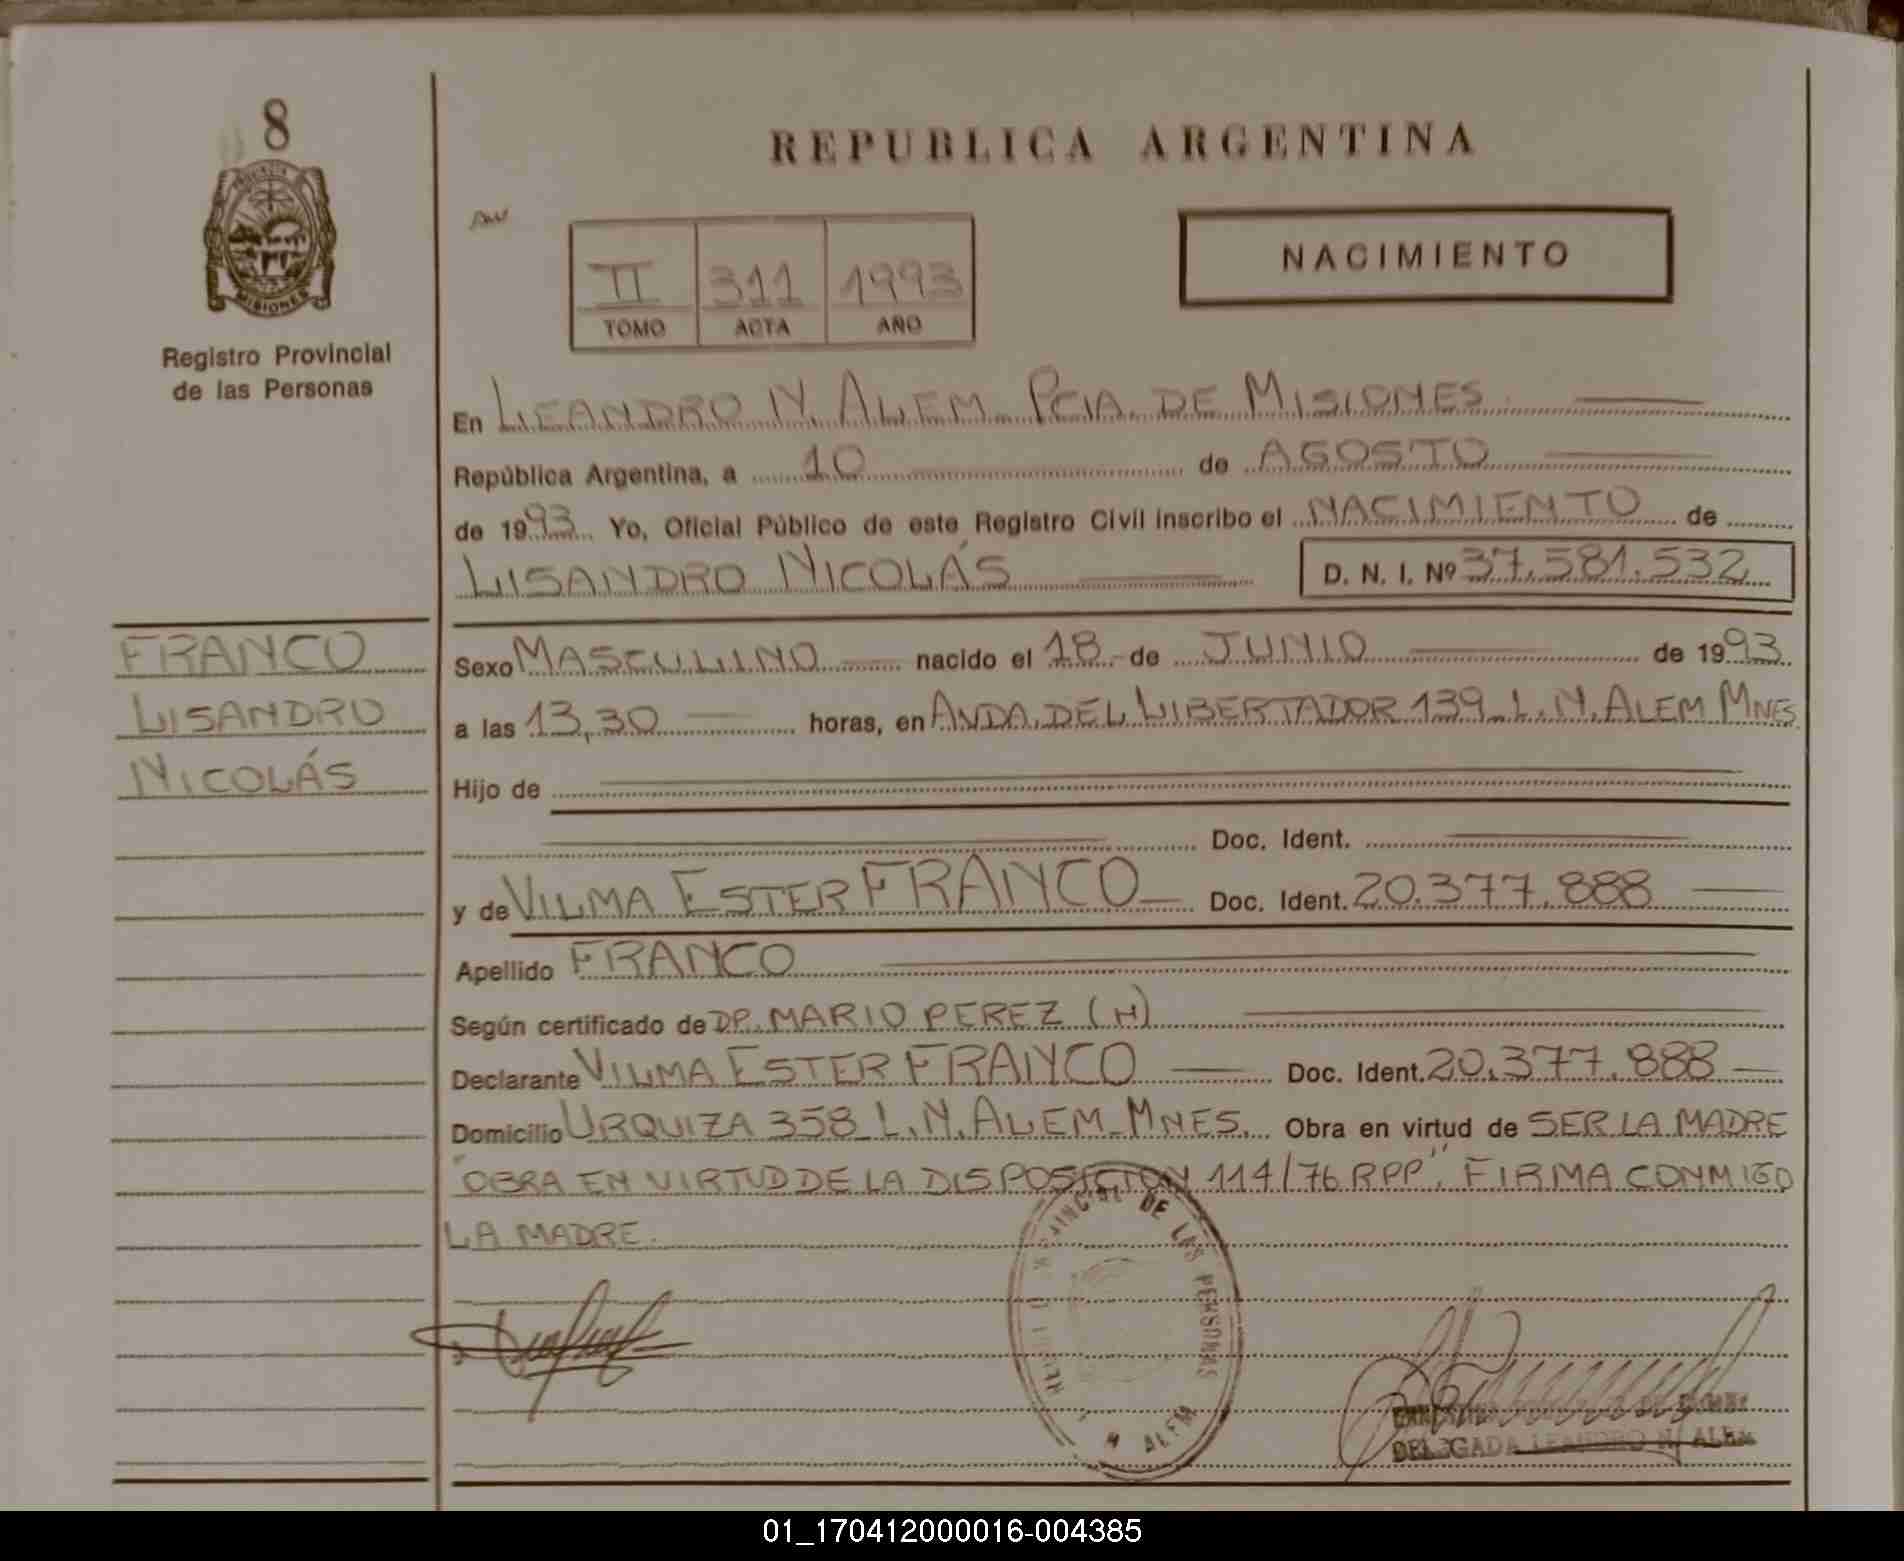 8
PROVINCIA DE
MISIONES
Registro Provincial
de las Personas
REPUBLICA ARGENTINA
II 311 1993
TOMO ACTA AÑO
NACIMIENTO
En LEANDRO N. ALEM PCIA. DE MISIONES
República Argentina, a 10 de AGOSTO
de 1993. Yo, Oficial Público de este Registro Civil inscribo el NACIMIENTO de
LISANDRO NICOLÁS D. N. I. Nº 37.581.532
FRANCO
LISANDRO
NICOLÁS
Sexo MASCULINO nacido el 18 de JUNIO de 1993
a las 13,30 horas, en AVDA. DEL LIBERTADOR 139 L. N. ALEM MNES
Hijo de
Doc. Ident.
y de VILMA ESTER FRANCO Doc. Ident. 20.377.888
Apellido FRANCO
Según certificado de DR. MARIO PEREZ (H)
Declarante VILMA ESTER FRANCO Doc. Ident. 20.377.888
Domicilio URQUIZA 358 L. N. ALEM MNES. Obra en virtud de SER LA MADRE
"OBRA EN VIRTUD DE LA DISPOSICION 114/76 RPP". FIRMA CONMIGO
LA MADRE.
DE LAS PERSONAS
N ALEM
DELEGADA LEANDRO N. ALEM
01_170412000016-004385